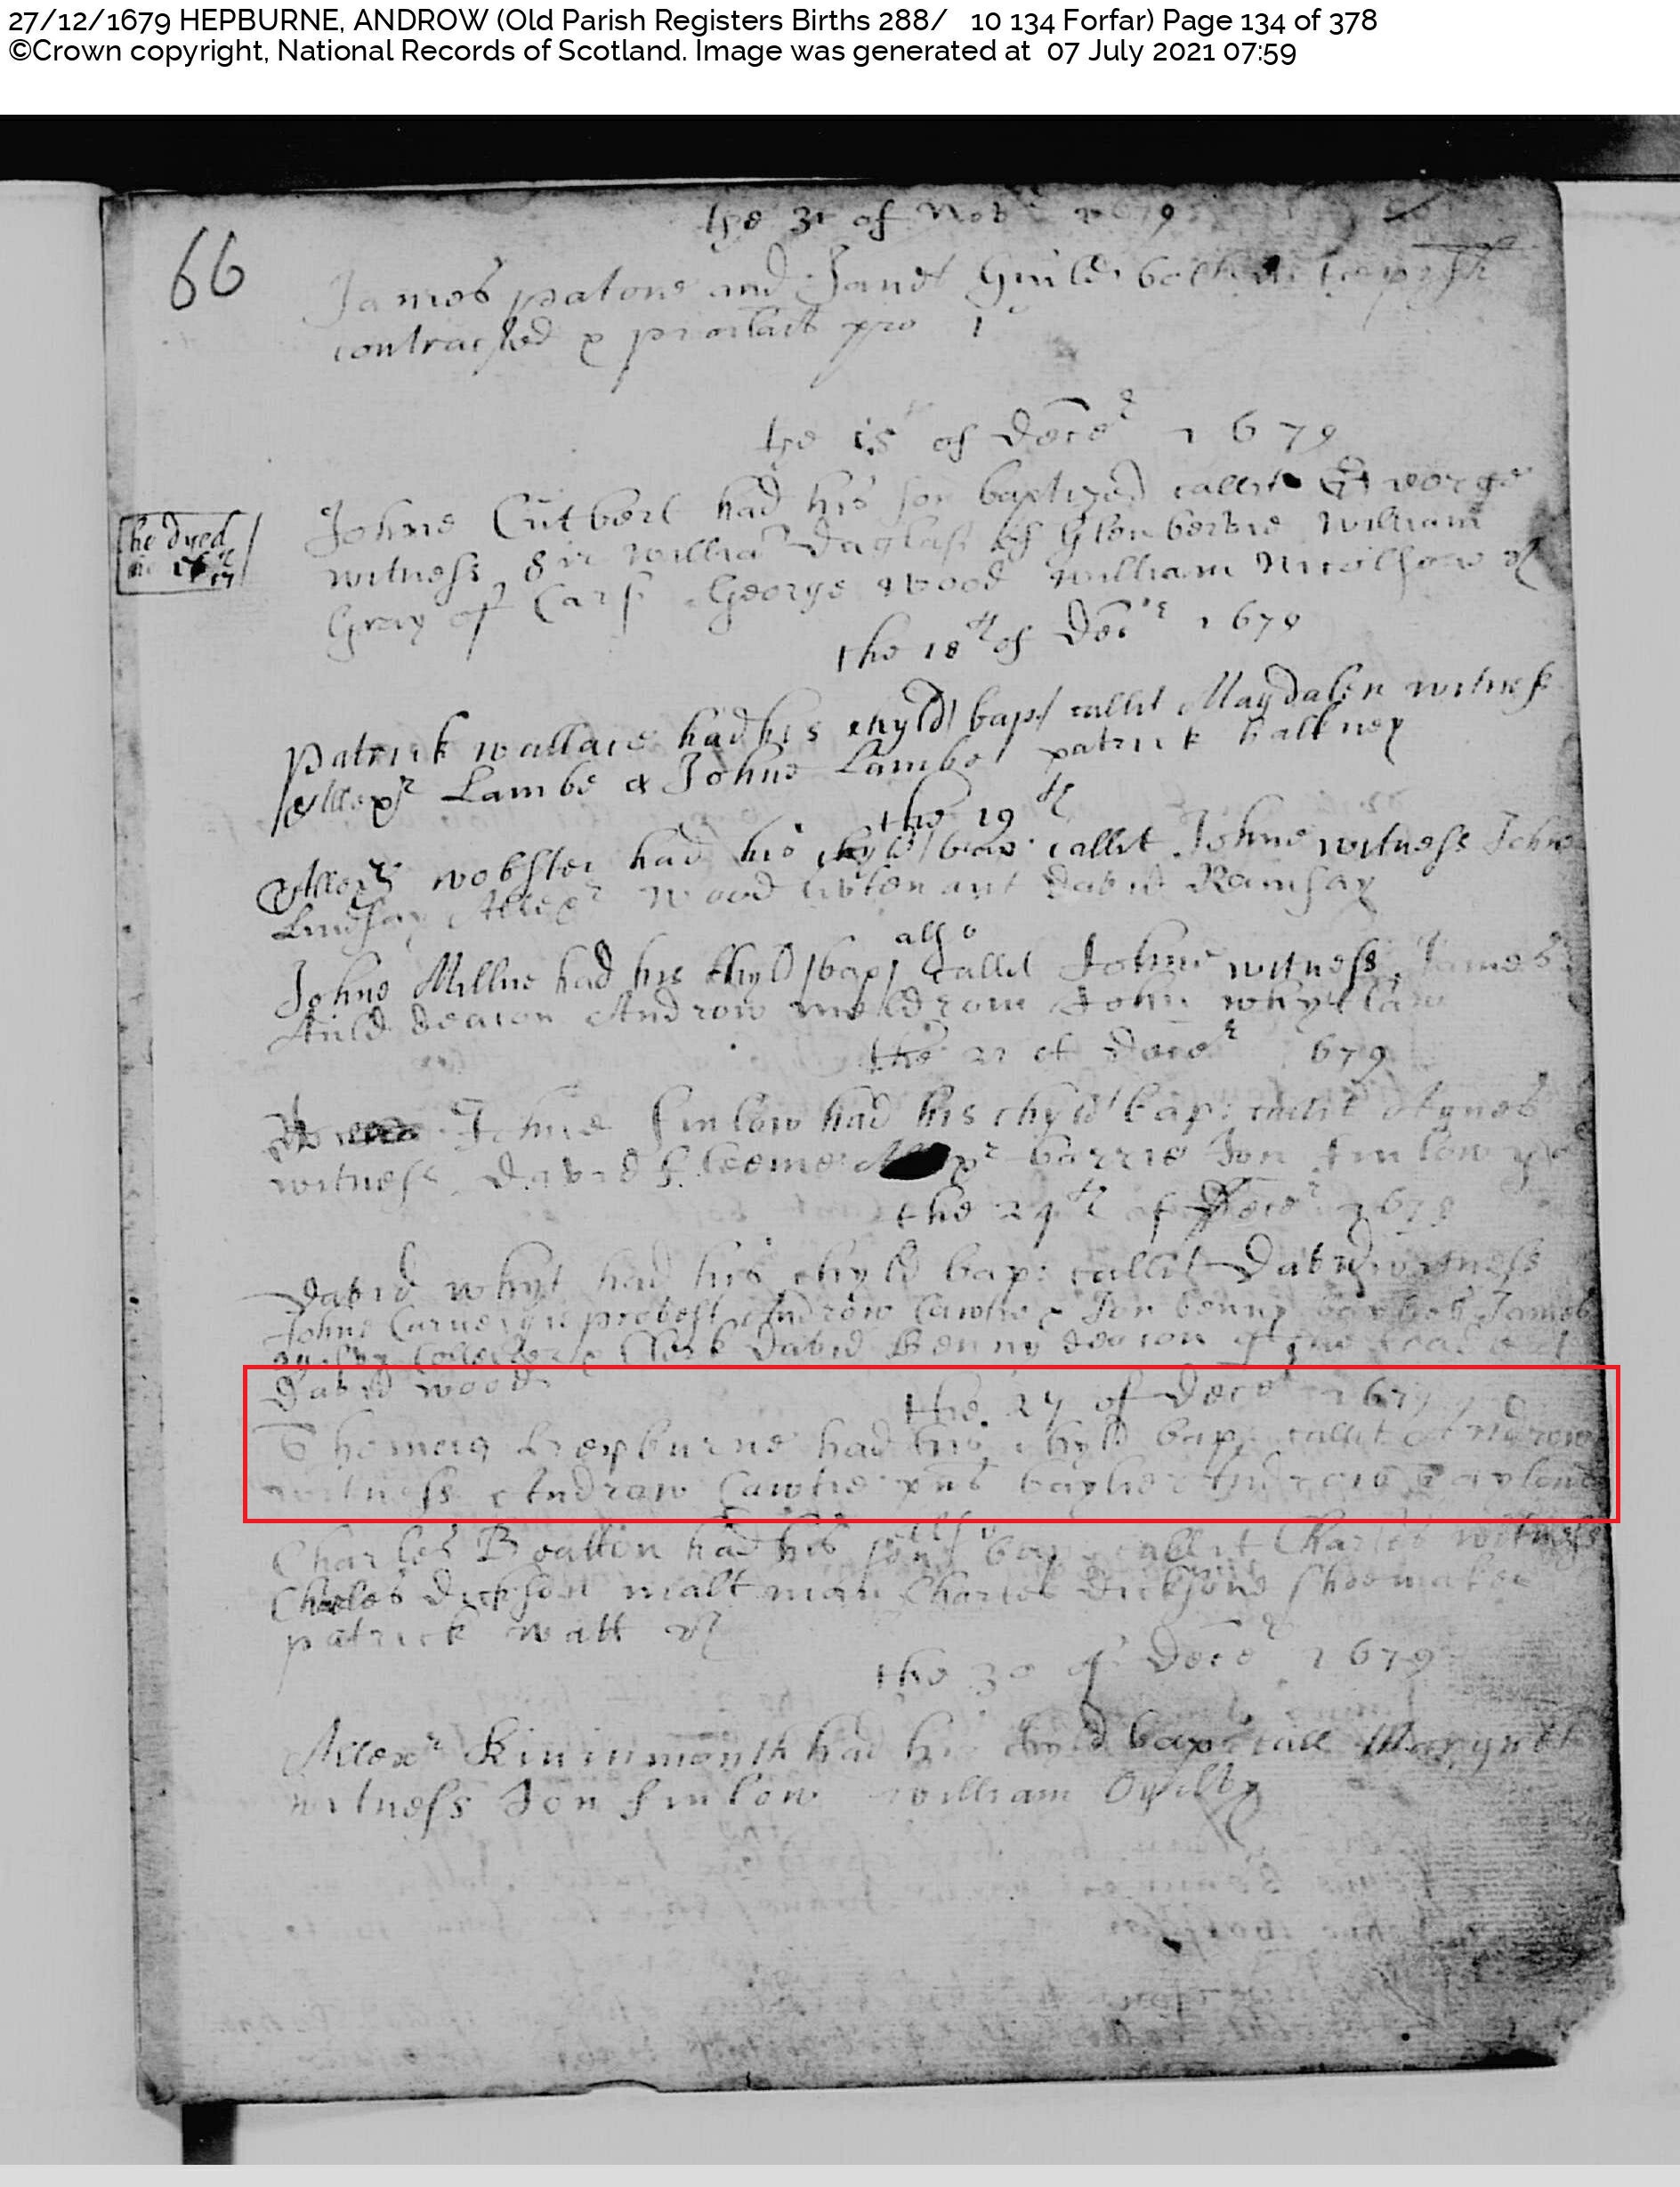 27/12/1679 HEPBURNE, ANDROW (Old Parish Registers Births 288/ 10 134 Forfar) Page 134 of 378
©Crown copyright, National Records of Scotland. Image was generated at 07 July 2021 07:59
the 31 of Nobr 1679
66
James patone and Janet Guild both in
contracted & pro 1o
the 15 of Decer 1679
Johne Cutbert had his son baptized callit George
he dyed
witness Sir William Duglass of Glenbervie William
Gray of Cars George Wood William Nicolsone &c
the 18th of Decr 1679
Patrick wallace had his chyld bap callit Magdalen witness
Allexr Lambe & Johne Lambe patrick
the 19th
Allexr webster had his chyld bap callit Johne witness John
Lindsay Allexr Wood David Ramsay
also
Johne Millne had his chyld bap callit Johne witness James
Auld deacon Androw meldrom John whytlaw
the 21 of Decer 1679
Johne finlow had his chyld bap: callit Agnes
witness David barrie Jon finlow
the 24th of Decer 1679
David whyt had his chyld bap: callit David witness
Johne provest Androw Cawtie Jon benny James
Clerk David Benny deacon of the
David wood
the 27 of Decer 1679
Thomas hepburne had his chyld bap: callit Androw
witness Androw Cawtie baylie Androw
also
Charles Beatton had his sone bap callit Charles witness
Charles Dickson malt man Charles Dicksone shoemaker
patrick watt &c
the 30 of Decer 1679
Allexr Kininmonth had his chyld bap call Margret
witness Jon finlow William Ogilby